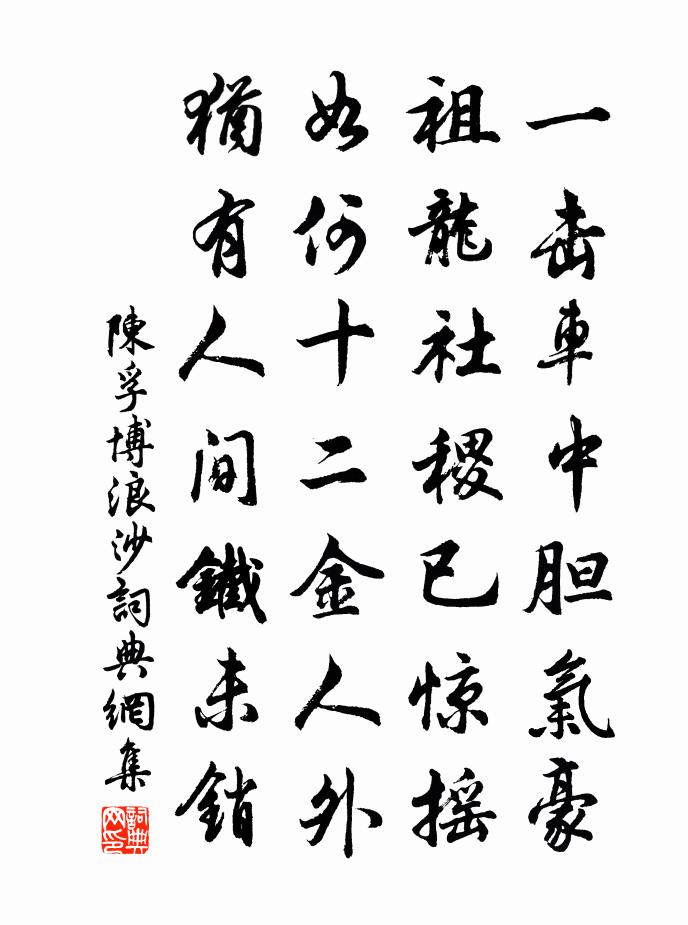 一击車中胆氣豪
祖龍社稷已惊摇
如何十二金人外
猶有人间鐵未銷
陳孚博浪沙詞典網集
詞典网印